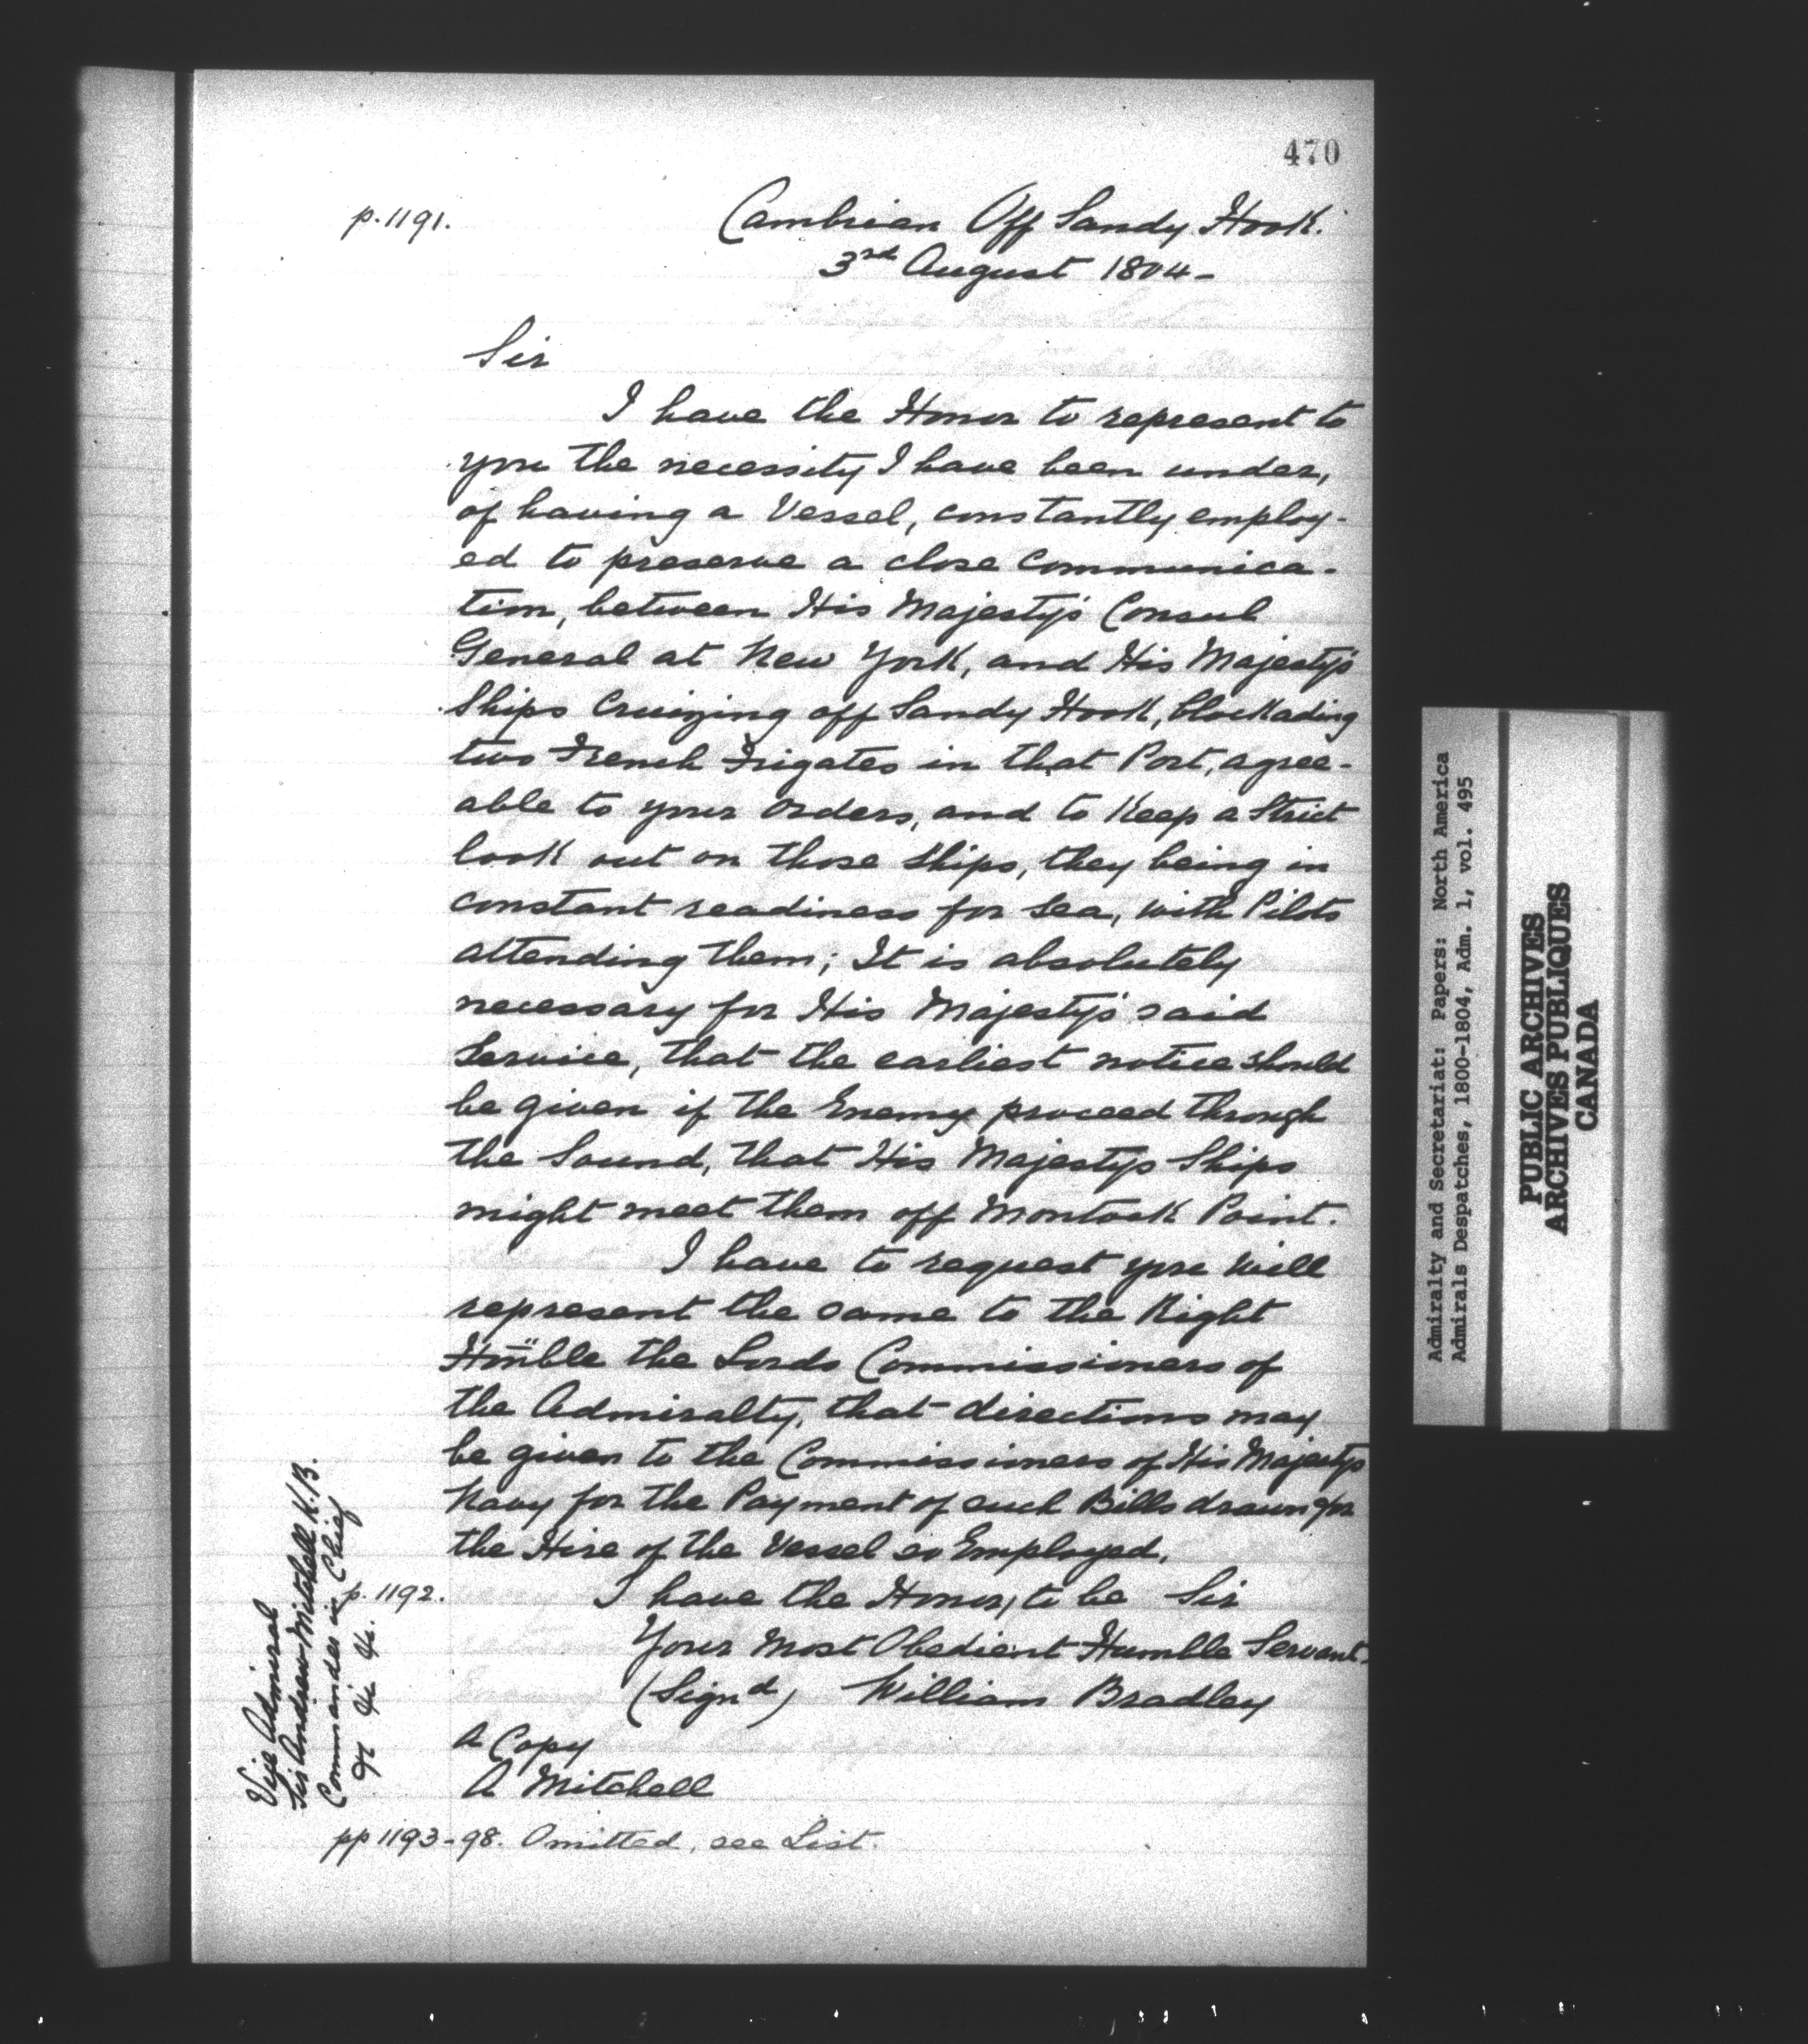 470
p. 1191.
Cambrian Off Sandy Hook.
3rd August 1804 -
Sir
I have the Honor to represent to
you the necessity I have been under,
of having a Vessel, constantly employ-
ed to preserve a close Communica-
tion, between His Majesty's Consul
General at New York, and His Majesty's
Ships Cruizing off Sandy Hook, blockading
two French Frigates in that Port, agree-
able to your orders, and to Keep a Strict
look out on those Ships, they being in
constant readiness for Sea, with Pilots
attending them; It is absolutely
necessary for His Majesty's said
Service, that the earliest notice should
be given if the Enemy proceed through
the Sound, that His Majestys Ships
might meet them off Montock Point.
I have to request you will
represent the same to the Right
Honble the Lords Commissioners of
the Admiralty, that directions may
be given to the Commissioners of His Majestys
Navy for the Payment of such Bills drawn for
the Hire of the Vessel so Employed.
p. 1192.
I have the Honor, to be Sir
Your Most Obedient Humble Servant.
(Signd) William Bradley
A Copy
A Mitchell
Vice Admiral
Sir Andrew Mitchell K.B.
Commander in Chief
&c &c &c.
pp 1193-98. Omitted, see List.
Admiralty and Secretariat: Papers: North America
Admirals Despatches, 1800-1804, Adm. 1, vol. 495
PUBLIC ARCHIVES
ARCHIVES PUBLIQUES
CANADA